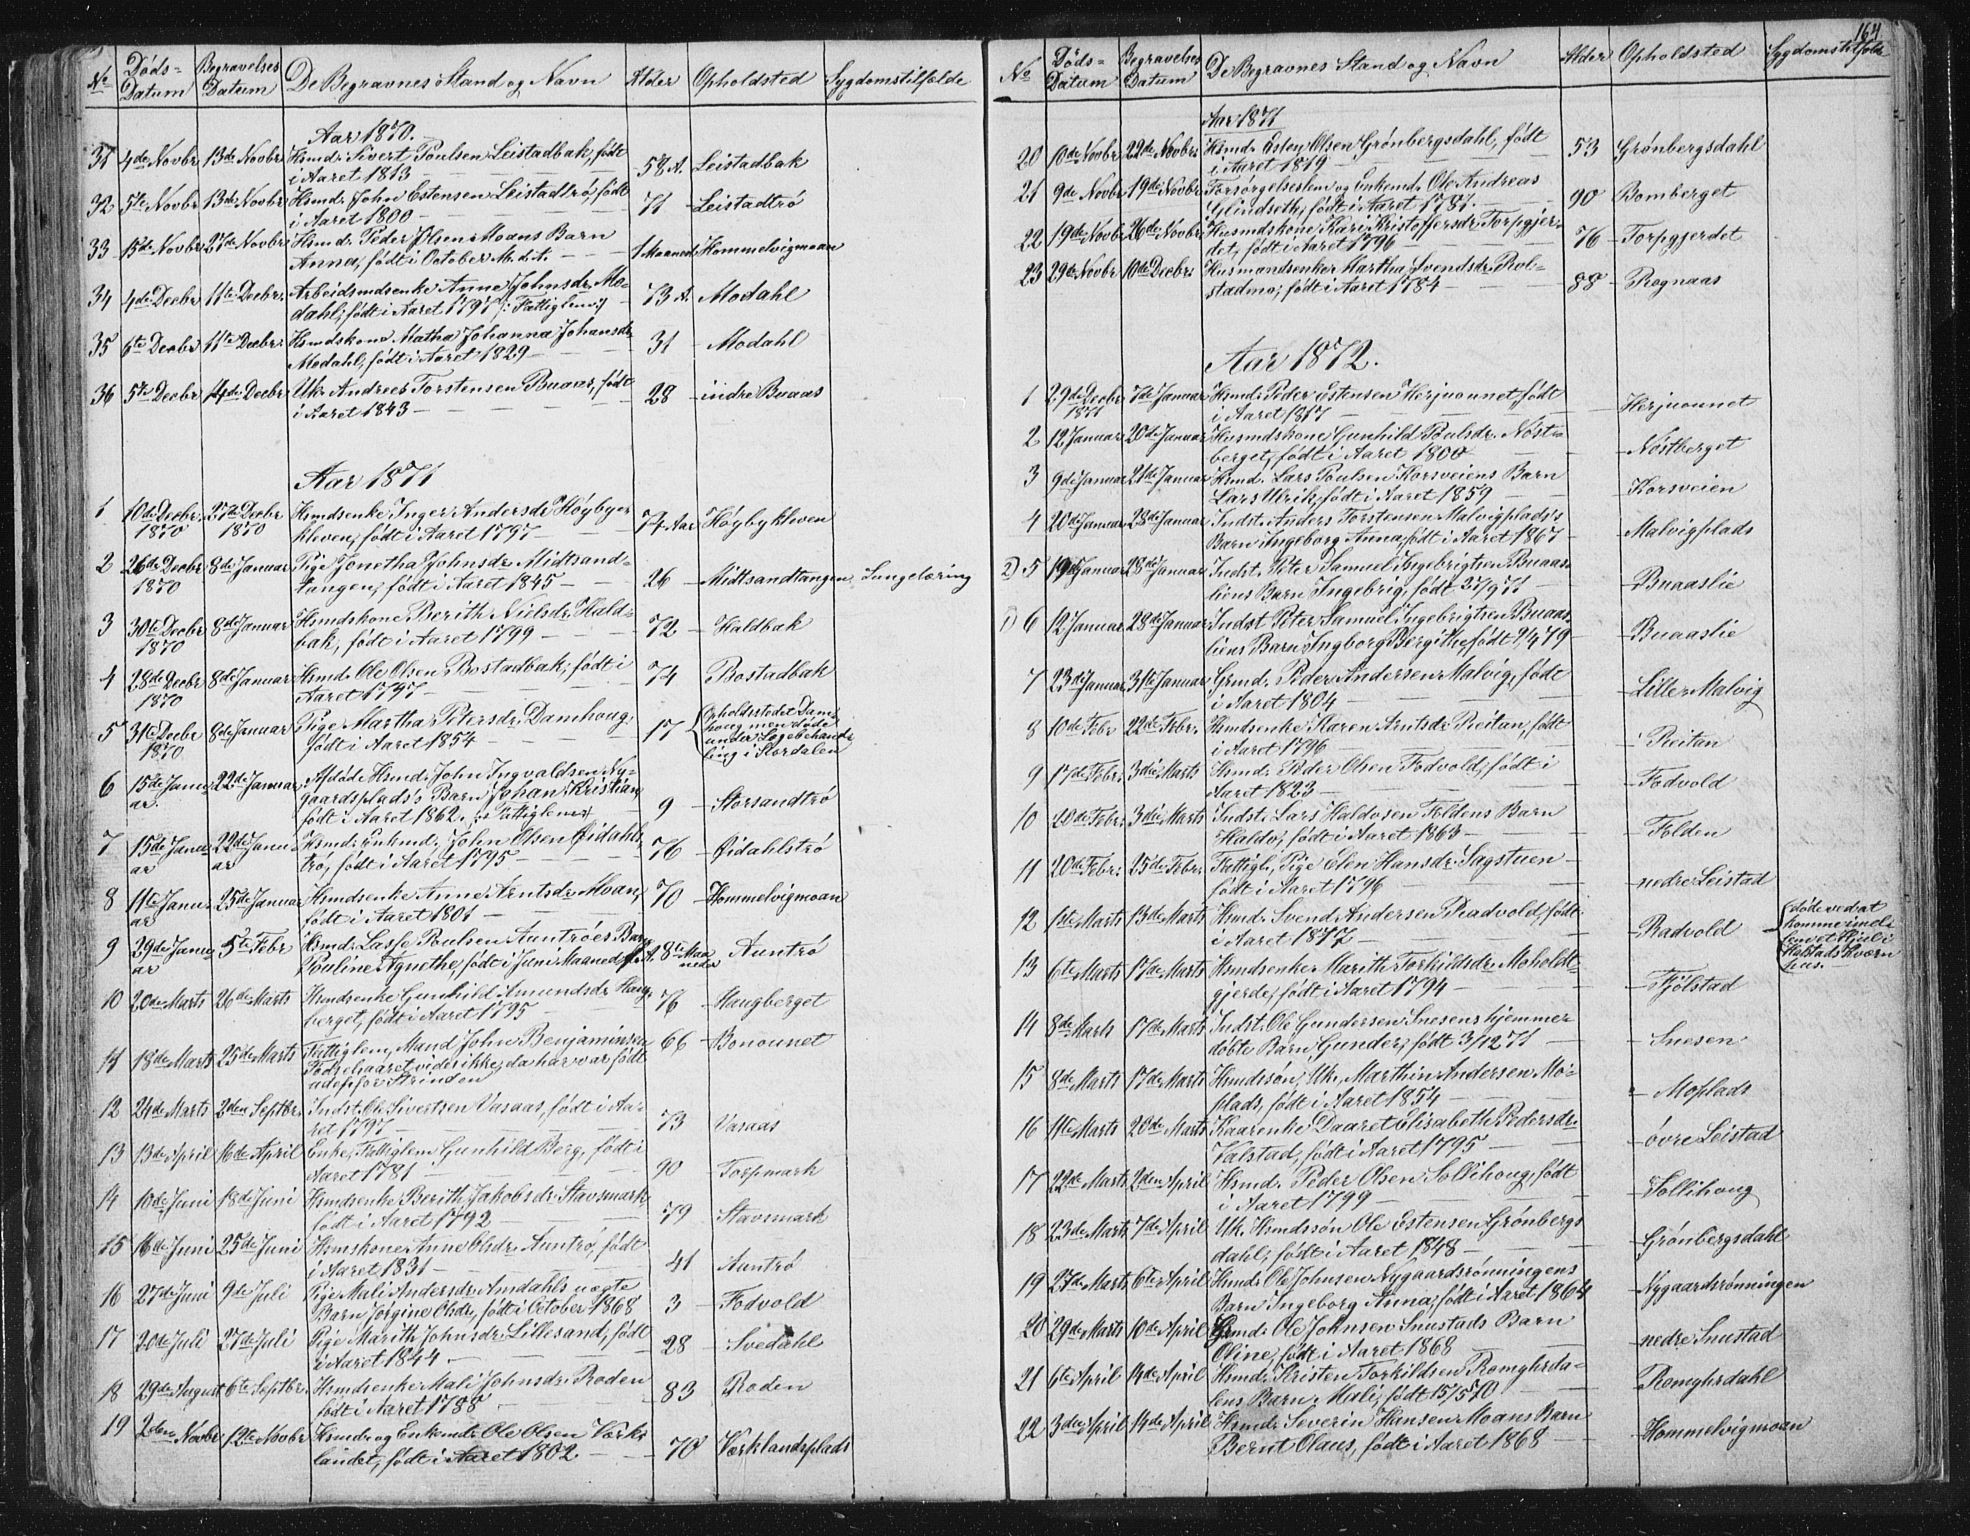 164
No Døds- Datum Begravelses Datum De Begravnes Stand og Navn Alder Opholdsted Sygdomstilfælde
Aar 1870.
31 4de Novbr 13de Novbr Hsmd. Sivert Poulsen Leistadbak, født 58 A. Leistadbak
i Aaret 1813
32 5te Novbr 13de Novbr Hsmd. John Estensen Leistadtrø, født 71 Leistadtrø
i Aaret 1800
33 15de Novbr 27de Novbr Hsmd. Peder Olsen Moans Barn 1 Maaned Hommelvigmoan
Anna, født i October M. d. A.
34 4de Decbr 11te Decbr. Arbeidsmdsenke Anne Johnsdr. Mo- 73 A. Modahl
dahl, født i Aaret 1797 /: Fattiglem :/
35 6te Decbr 11te Decbr. Hsmdskone Matha Johanna Johansdr. 31 Modahl
Modahl, født i Aaret 1829
36 5te Decbr 14de Decbr Uk. Andreas Torstensen Buaas, født 28 indre Buaas
i Aaret 1843
Aar 1871
1 10de Decbr. 27de Decbr Hsmdsenke Inger Andersdr. Høybye- 74 Aar Høybykleven
1870 1870 kleven, født i Aaret 1797
2 26de Decbr 8de Januar Pige Jonetha Johnsdr. Midtsand- 26 Midtsandtangen Lungelæring
1870 tangen, født i Aaret 1845
3 30te Decbr 8de Januar Hsmdskone Berith Nielsdr. Hald- 72 Haldbak
1870 bak, født i Aaret 1799
4 28de Decbr 8de Januar Hsmd. Ole Olsen Bostadbak, født i 74 Bostadbak
1870 Aaret 1797
5 31te Decbr 8de Januar Pige Martha Petersdr. Damhoug, 17 Opholdsstedet Dam-
1870 født i Aaret 1854 houg men døde
under Lægebehand-
ling i Stordalen
6 15de Janu- 22de Januar Afdøde Hsmd. John Ingvaldsen Ny-
ar. gaardsplads's Barn Johan Kristian, 9 Storsandtrø
født i Aaret 1862. /: Fattiglem :/
7 15de Janu- 22de Janu- Hsmd. Enkmd. John Olsen Øidahls- 76 Øidahlstrø
ar ar trø, født i Aaret 1795
8 11te Janu- 25de Januar Hsmdsenke Anne Arntsdr. Moan, 70 Hommelvigmoan
ar født i Aaret 1801
9 29de Janu- 5te Febr Hsmd. Lasse Poulsen Auntrøes Barn 8te Maa- Auntrø
ar Pauline Agnethe, født i Juni Maaned f. A. neder
10 20de Marts 26de Marts Hsmdsenke Gunhild Amundsdr. Haug- 76 Haugberget
berget, født i Aaret 1795
11 18de Marts 25de Marts Fattiglem, Mand John Benjaminsen 66 Bonounet
Fødselsaaret vides ikke, da har var født
udenfor Strinden
12 24de Marts 2den Septbr. Indst. Ole Sivertsen Vasaas, født i Aa- 73 Vasaas
ret 1797
13 13de April 16de April Enke, Fattiglem Gunhild Berg, født i 90 Torpmark
Aaret 1781
14 10de Juni 18de Juni Hsmdsenke Berith Jakobsdr. Stavsmark, 79 Stavsmark
født i Aaret 1792
15 16de Juni 25de Juni Hsmskone Anne Olsdr. Auntrø, født 41 Auntrø
i Aaret 1831
16 27de Juni 9de Juli Pige Mali Andersdr. Amdahls uægte 3 Fodvold
Barn Jørgine Olsdr., født i October 1868
17 20de Juli 27de Juli Pige Marith Johnsdr. Lillesand, født 28 Svedahl
i Aaret 1844
18 29de August 6te Septbr. Hsmdsenke Mali Johnsdr. Roden 83 Roden
født i Aaret 1788
19 2den Novbr 12te Novbr Hsmd. og Enkmd. Ole Olsen Værks- 70 Værklandsplads
landet, født i Aaret 1802
No Døds- Datum Begravelses Datum De Begravnes Stand og Navn Alder Opholdsted Sygdomstilfælde
Aar 1871
20 10de Novbr 22de Novbr. Hsmd. Esten Olsen Grønbergsdahl, født 53 Grønbergsdahl
i Aaret 1819
21 9de Novbr 19de Novbr Forsørgelseslem og Enkemd. Ole Andreas 90 Bomberget
Glindseth, født i Aaret 1781
22 19de Novbr 26de Novbr. Husmdskone Kari Kristoffersdr. Torpgjer- 76 Torpgjerdet
det, født i Aaret 1796
23 29de Novbr 10de Decbr. Husmandsenke Martha Svendsdr. Rol- 88 Rognaas
stadmo, født i Aaret 1784
Aar 1872.
1 29de Decbr 7de Januar Hsmd. Peder Estensen Herjuounet, født Herjuounet
1871 i Aaret 1817
2 12 Januar 20de Januar Husmdskone Gunhild Poulsdr. Nøst- Nøstberget
berget, født i Aaret 1800
3 9de Januar 21de Januar Hsmd. Lars Poulsen Korsveiens Barn Korsveien
Lars Ulrik, født i Aaret 1859
4 20de Januar 28de Januar Indst. Anders Torstensen Malvigplads's Malvigplads
Barn Ingeborg Anna, født i Aaret 1867
2) 5 19de Januar 28de Januar Indst. Peter Samuel Ingebrigtsen Buaas- Buaaslie
liens Barn Ingebrig, født 27/9 71
1) 6 12 Januar 28de Januar Indst Peter Samuel Ingebrigtsen Buaas- Buaaslie
liens Barn Ingborg Bergithe, født 2/4 79
7 23de Januar 31te Januar Grmd. Peder Andersen Malvig, født Lille Malvig
i Aaret 1804
8 10de Febr 22de Febr. Hsmdsenke Karen Arntsdr. Reitan, født Reitan
i Aaret 1796
9 17de Febr. 3die Marts Hsmd. Peder Olsen Fodvold, født i Fodvold
Aaret 1823
10 20de Febr. 3die Marts Indst. Lars Haldosen Foldens Barn Folden
Haldo, født i Aaret 1863
11 20de Febr. 25de Febr. Fattigl. Pige Elen Hansdr. Sagstuen nedre Leistad
født i Aaret 1796
12 1ste Marts 13de Marts Hsmd. Svend Andersen Radvold, født Radvold døde ved at
i Aaret 1847 komme imel-
lem et Hjul i
Halstads Kværn-
hus.
13 6te Marts 17de Marts Hsmdsenke Marith Torkildsdr. Moholdt- Fjølstad
gjerde, født i Aaret 1794
14 8de Marts 17de Marts Indst. Ole Gundersen Snesens hjemme- Snesen
døbte Barn Gunder, født 3/12 71
15 8de Marts 17de Marts Hsmdssøn, Uk. Marthin Andersen Mo- Moplads
plads, født i Aaret 1854
16 11te Marts 20de Marts Kaarenke Daaret Elisabeth Pedersdr. øvre Leistad
Valstad, født i Aaret 1795
17 22de Marts 2den April Hsmd. Peder Olsen Sollihoug, født Sollihoug
i Aaret 1799
18 23de Marts 7de April Uk. Hsmdssøn Ole Estensen Grønbergs- Grønbergsdahl
dahl, født i Aaret 1848
19 27de Marts 6te April Hsmd. Ole Johnsen Nygaardsrønningens Nygaardsrønningen
Barn Ingeborg Anna, født i Aaret 1864
20 29de Marts 10de April Grmd. Ole Johnsen Snustads Barn nedre Snustad
Oline, født i Aaret 1868
21 6te April 14de April Hsmd. Kristen Torkildsen Romghrda- Romghrdahl
lens Barn Mali, født 15/5 70
22 3die April 14de April Hsmd. Severin Hansen Moans Barn Hommelvigmoan
Bernt Olaus, født i Aaret 1868